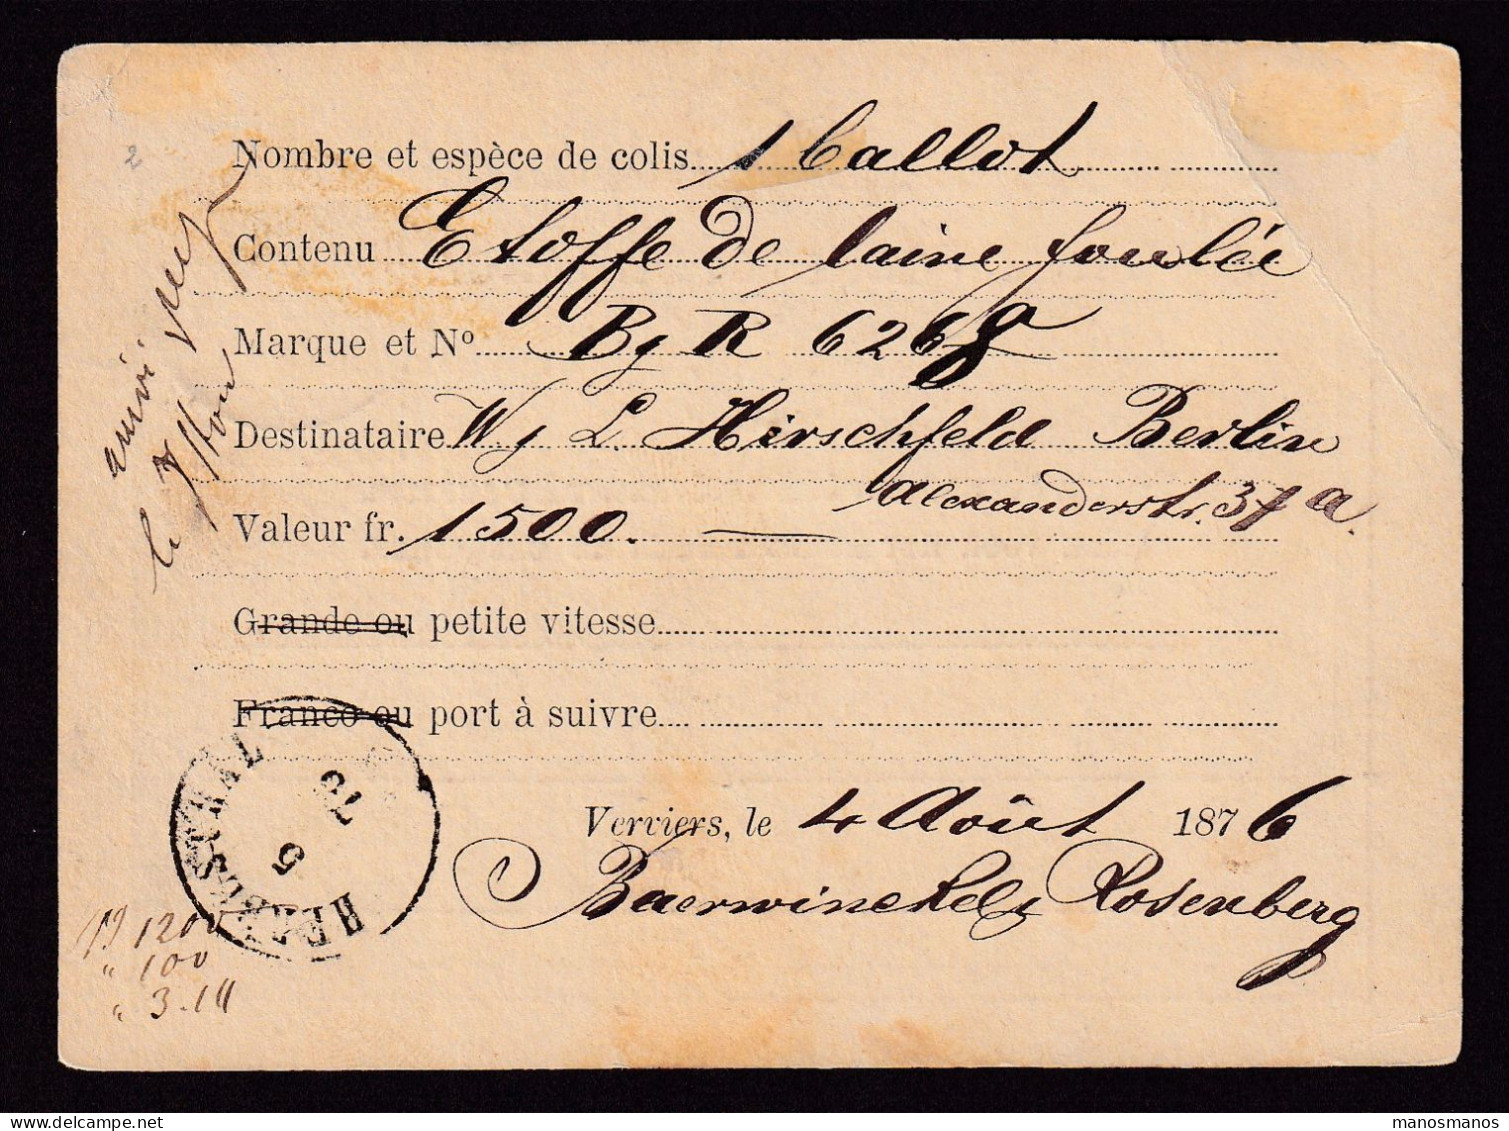 Nombre et espèce de colis 1 ballot
Contenu Etoffe de laine foulée
Marque et Nº B & R 6268
Destinataire W & L. Hirschfeld Berlin
Alexanderstr. 37 a.
Valeur fr. 1500. —
Grande ou petite vitesse
Franco ou port à suivre
Verviers, le 4 Août 1876
Baerwinckel & Rosenberg
HERBESTHAL
5
1200
" 100
" 3.
2
le
manosmanos